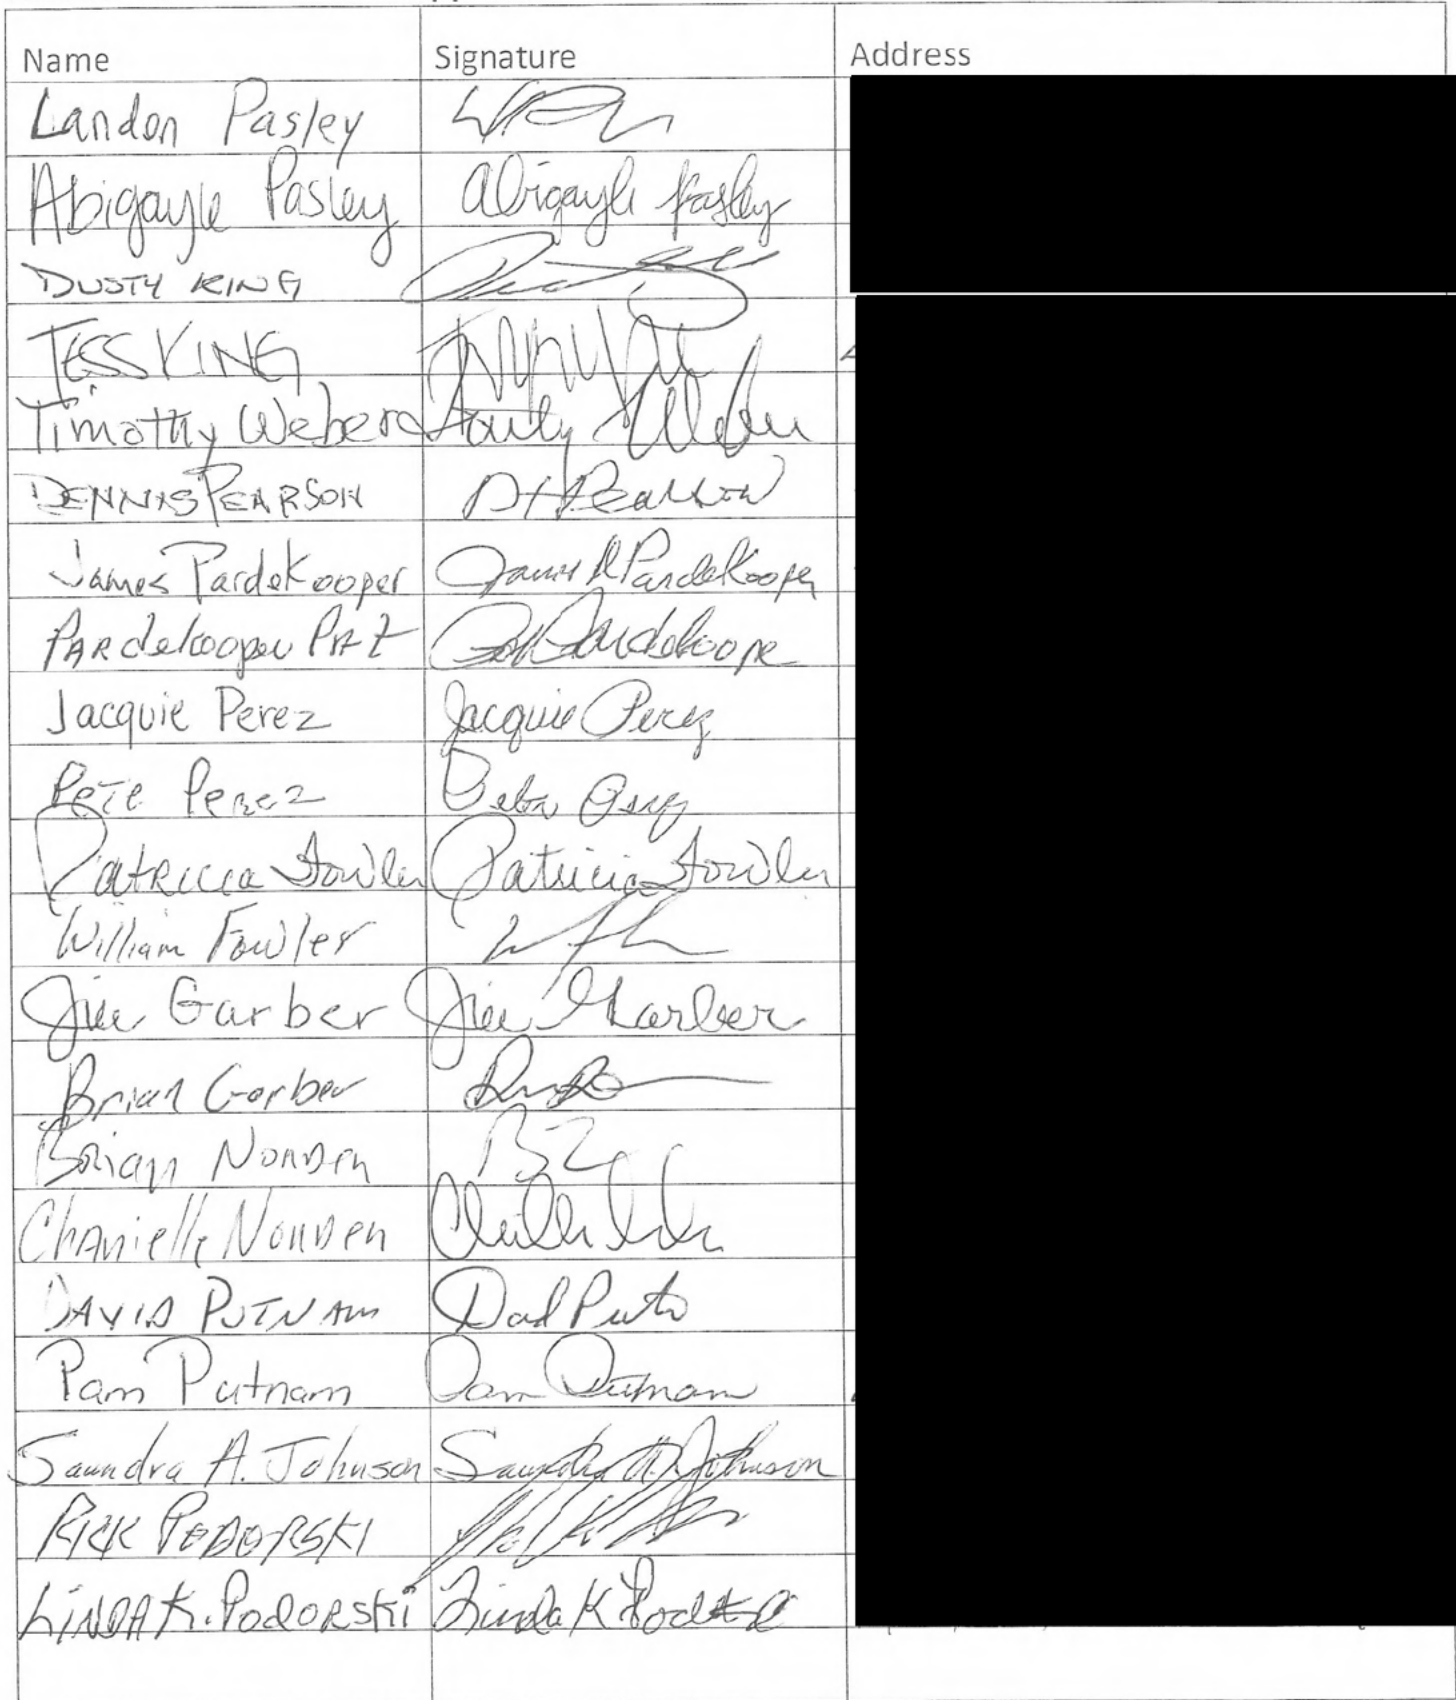 Name Signature Address
Landon Pasley
Abigayle Pasley Abigayle Pasley
DUSTY KING
TESS KING
Timothy Weber
DENNIS PEARSON DH Pearson
James Pardekooper James R Pardekooper
PARdekooper PAT Pat Pardekoope
Jacquie Perez Jacquie Perez
PeTe Perez
Patricia Fowler Patricia Fowler
William Fowler
Garber Garber
Brian Garber
Brian Norden
Chanielle Norden
DAVID PUTNAM
Pam Putnam Pam Putnam
Saundra A. Johnson Saundra A. Johnson
RICK PODORSKI
LINDA K. PodORSKi Linda K